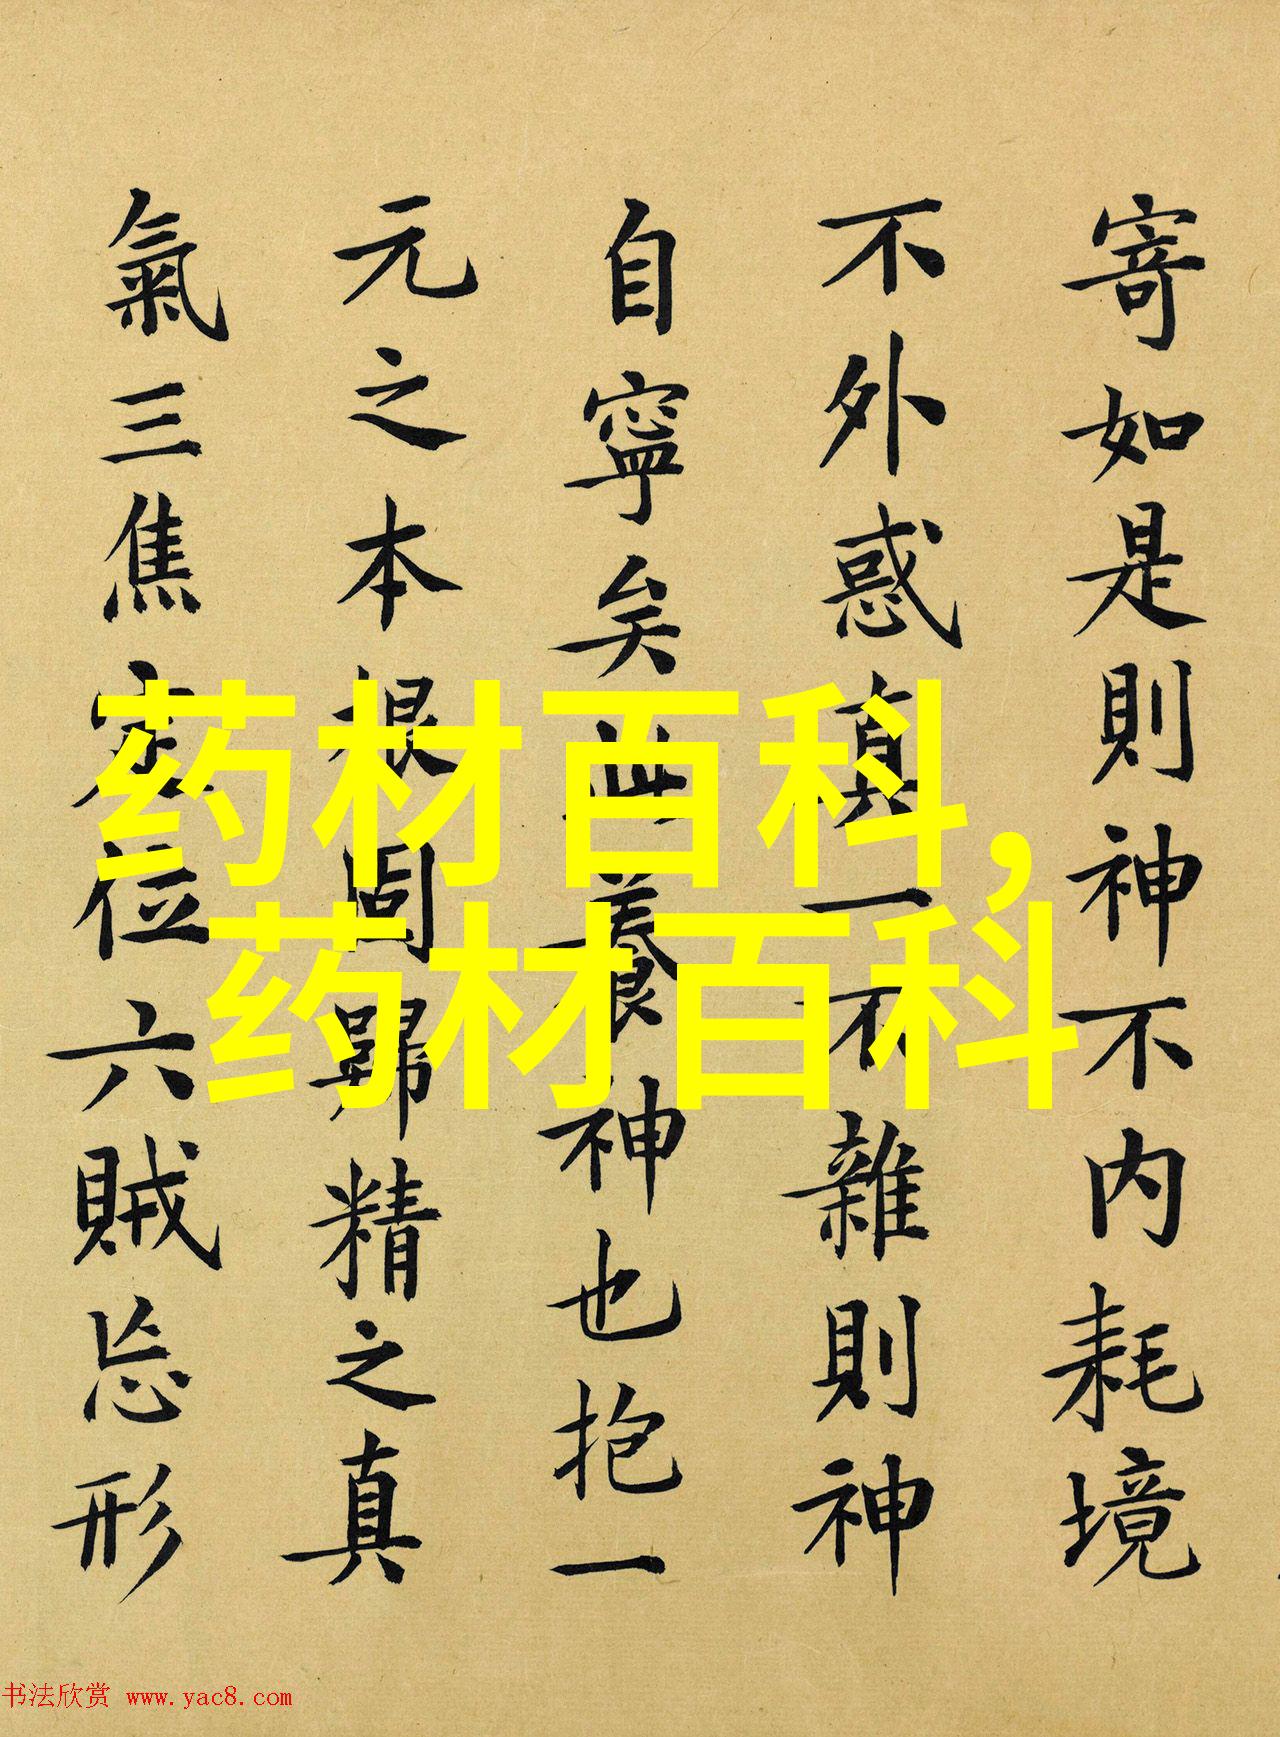 寄如是則神不内耗境
不外惑真一不雜則神
自寧矣此養神也抱一
元之本根固歸精之真
氣三焦定位六賊忘形
药材百科,
药材百科
书法欣赏 www.yac8.com